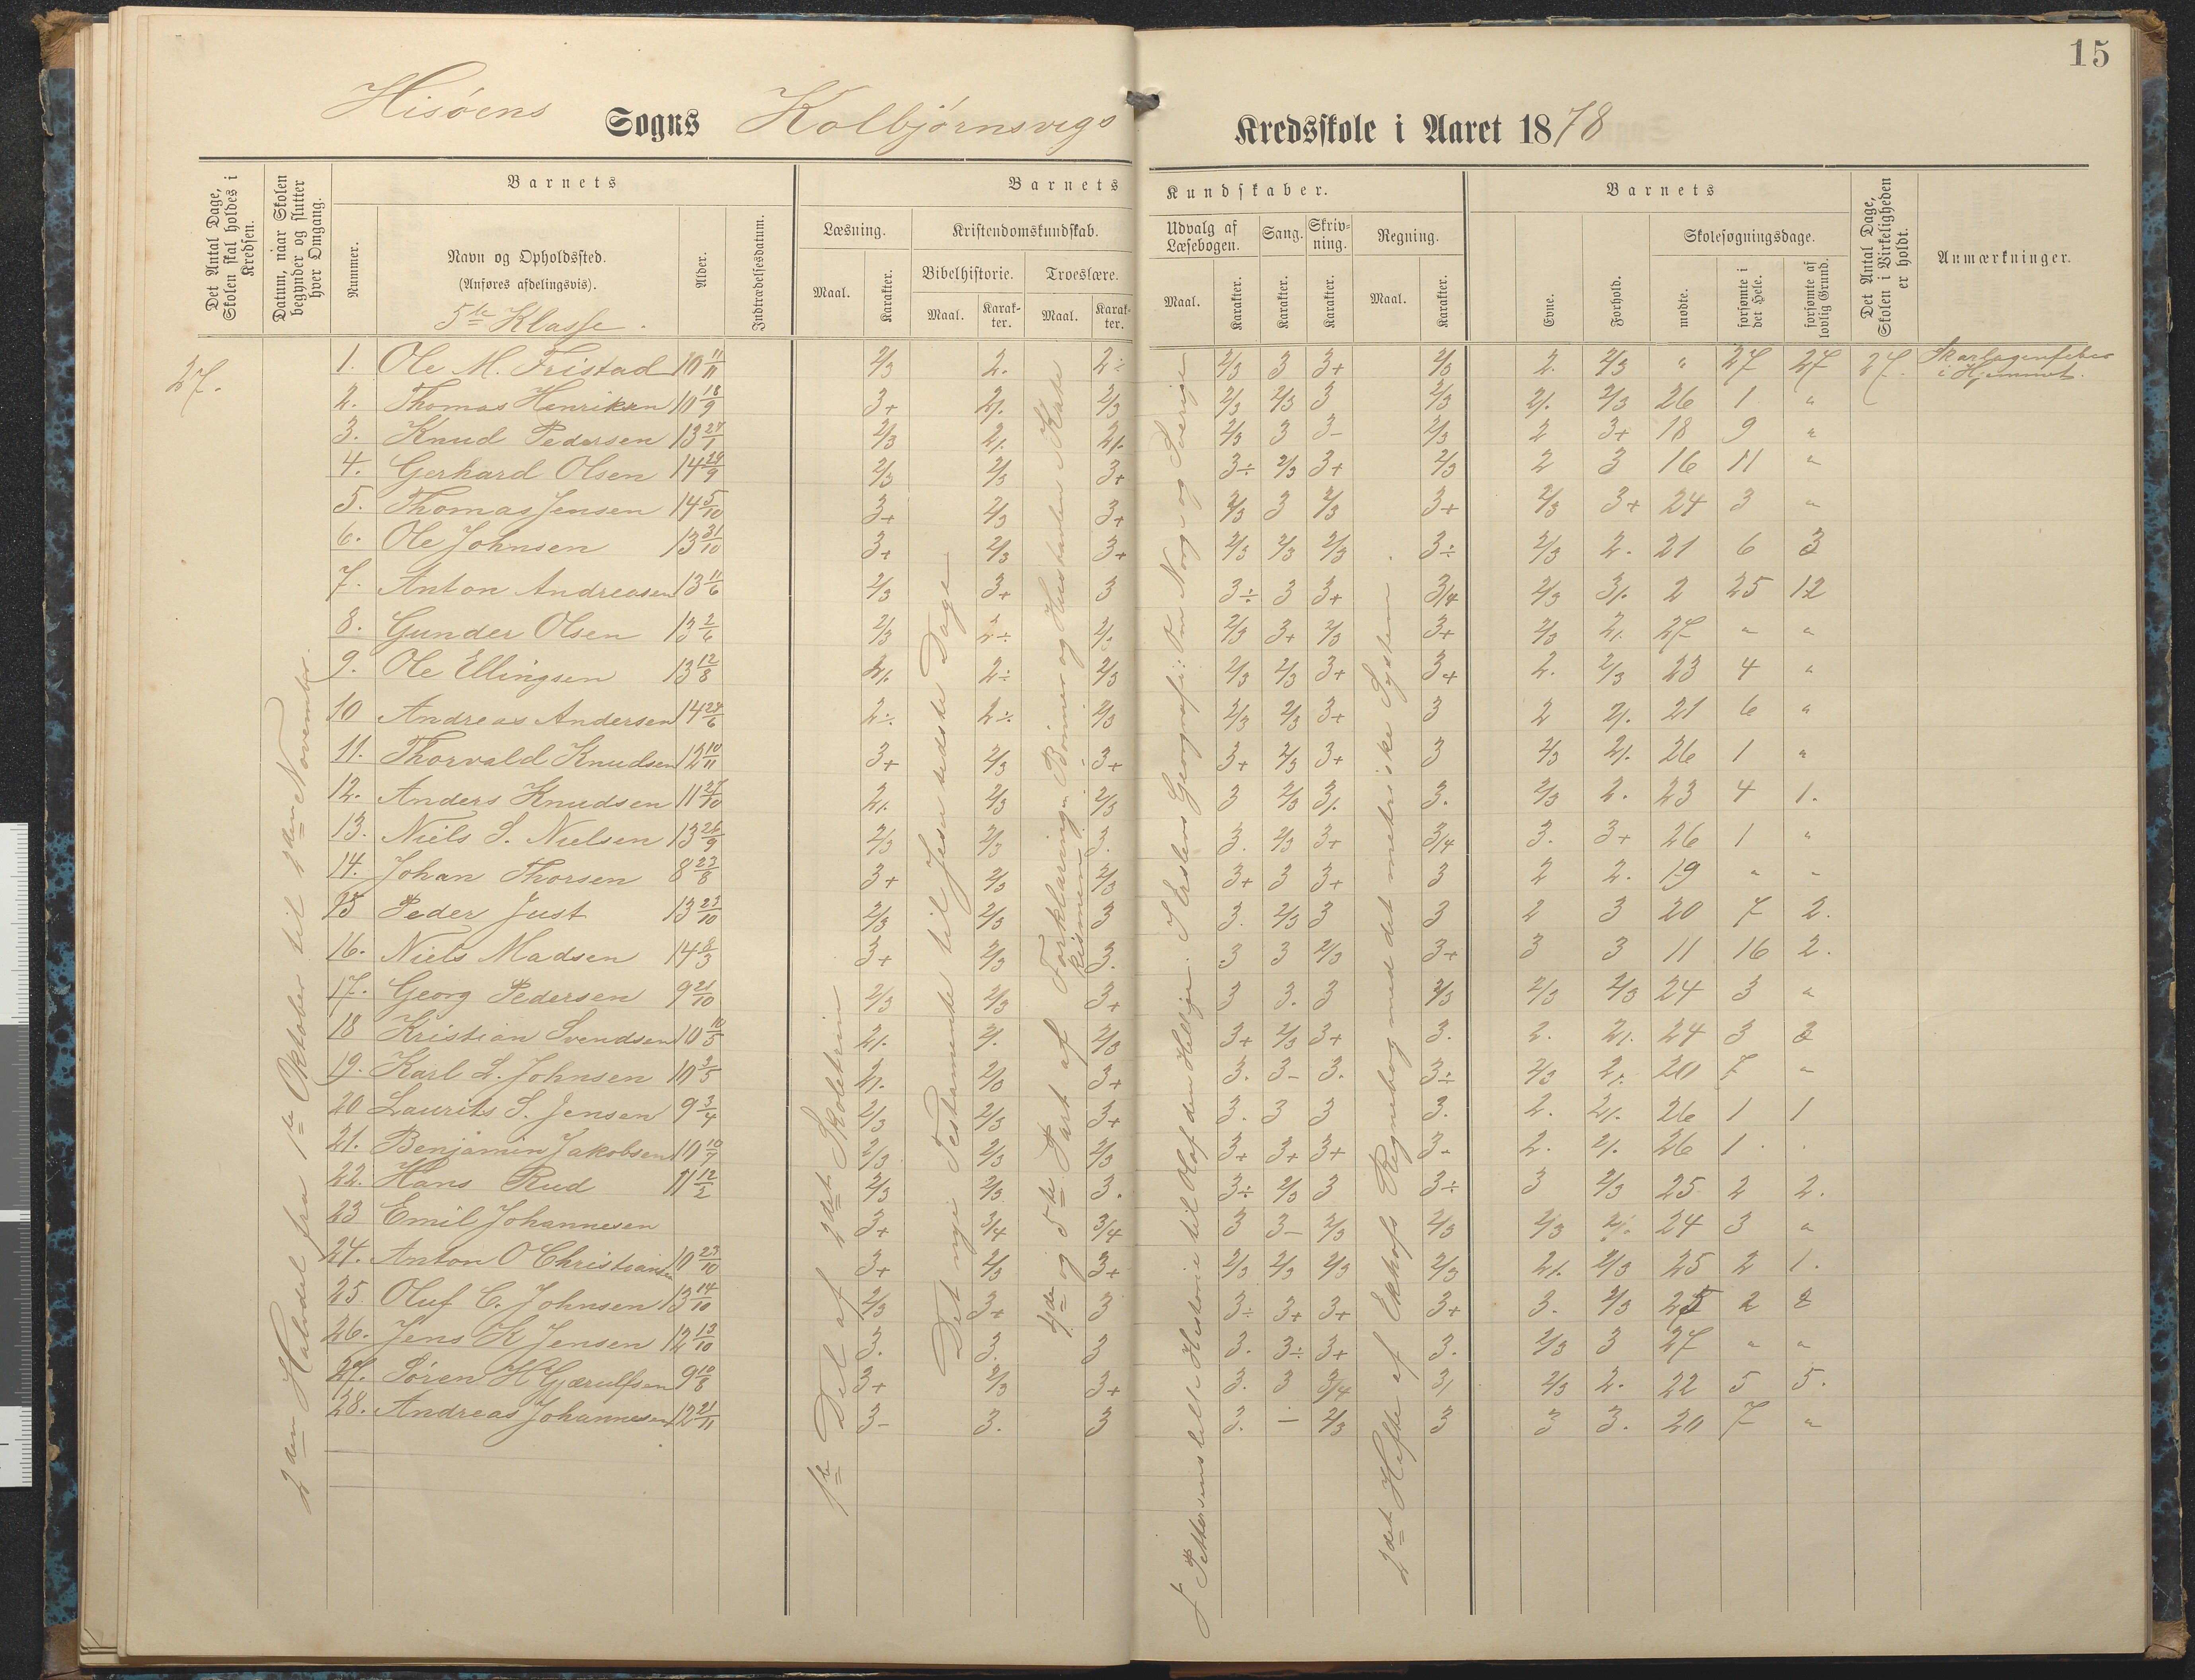 15
Hisøens Sogns Kolbjørnsvegs Kredsskole i Aaret 1878
Det Antal Dage, Skolen skal holdes i Kredsen.
Datum, naar Skolen begynder og slutter hver Omgang.
Barnets
Nummer.
Navn og Opholdssted.
(Anføres afdelingsvis).
5te Klasse.
Alder.
Indtrædelsesdatum.
Barnets Kundskaber.
Læsning.
Maal.
Karakter.
Kristendomskundskab.
Bibelhistorie.
Maal.
Karakter.
Troeslære.
Maal.
Karakter.
Udvalg af Læsebogen.
Maal.
Karakter.
Sang.
Karakter.
Skrivning.
Karakter.
Regning.
Maal.
Karakter.
Barnets
Evne.
Forhold.
Skolesøgningsdage.
mødte.
forsømte i det Hele.
forsømte af lovlig Grund.
Det Antal Dage, Skolen i Virkeligheden er holdt.
Anmærkninger.
27.
2den Halvdel fra 1te Oktober til 2den November.
1te Del af 2det Skoletrin
Det nye Testamente til Jesu sidste Dage
4de og 5te Part af Forklaringen. Bønner og Hustavlen i Katekismen
J Pettersens lille Historie til Olaf den Hellige. I Erslevs Geografi: Om Norge og Sverige
2det Hefte af Ekhofs Regnebog med det metriske System.
1. Ole M. Fristad 10 11/11 2/3 2. 2÷ 2/3 3 3+ 2/3 2. 2/3 " 27 27 27. Skarlagensfeber i Hjemmet.
2. Thomas Henriksen 10 18/9 3+ 2/. 2/3 2/3 2/3 3 2/3 2/. 2/3 26 1 "
3. Knud Pedersen 13 27/1 2/3 2/. 2/. 2/3 3 3- 2/3 2 3+ 18 9 "
4. Gerhard Olsen 14 29/9 2/3 2/3 3+ 3÷ 2/3 3+ 2/3 2 3 16 11 "
5. Thomas Jensen 14 5/10 3+ 2/3 3+ 2/3 3 2/3 3+ 2/3 3+ 24 3 "
6. Ole Johnsen 13 31/10 3+ 2/3 3+ 2/3 2/3 2/3 3÷ 2/3 2. 21 6 3
7. Anton Andreasen 13 11/6 2/3 3+ 3 3÷ 3 3+ 3/4 2/3 3/. 2 25 12
8. Gunder Olsen 13 2/6 2/3 2÷ 2/. 2/3 3+ 2/3 3+ 2/3 2/. 27 " "
9. Ole Ellingsen 13 12/8 2/. 2÷ 2/3 2/3 2/3 3+ 3+ 2. 2/3 23 4 "
10 Andreas Andersen 14 28/6 2÷ 2÷ 2/3 2/3 2/3 3+ 3 2 2/. 21 6 "
11. Thorvald Knudsen 12 10/11 3+ 2/3 3+ 3+ 2/3 3+ 3 2/3 2/. 26 1 "
12. Anders Knudsen 11 27/10 2/. 2/3 2/3 3 2/3 3/. 3. 2/3 2. 23 4 1.
13. Niels S. Nielsen 13 26/9 2/3 2/3 3. 3. 2/3 3+ 3/4 3. 3+ 26 1 "
14. Johan Thorsen 8 23/8 3+ 2/3 2/3 3+ 3 3+ 3 2 2. 19 " -
15 Peder Just 13 23/10 2/3 2/3 3 3. 2/3 3 3 2 3 20 7 2.
16. Niels Madsen 14 8/3 3+ 2/3 3. 3 3 2/3 3+ 3 3 11 16 2.
17. Georg Pedersen 9 21/10 2/3 2/3 3+ 3 3. 3 2/3 2/3 2/3 24 3 "
18 Kristian Svendsen 10 10/5 2/. 2/. 2/3 3+ 2/3 3+ 3. 2. 2/. 24 3 2
19. Karl L. Johnsen 10 2/5 2/. 2/3 3+ 3. 3- 3. 3÷ 2/3 2/. 20 7 "
20 Laurits S. Jensen 9 3/4 2/3 2/3 3+ 3. 3 3 3. 2. 2/. 26 1 1
21. Benjamin Jakobsen 10 10/7 2/3 2/3 2/3 3+ 3+ 3+ 3- 2. 2/. 26 1 .
22. Hans Rud 11 12/2 2/3 2/3 3. 3÷ 2/3 3 3÷ 3 2/3 25 2 2.
23 Emil Johannesen 3+ 3/4 3/4 3 3- 2/3 2/3 2/3 2/. 24 3 "
24. Anton O Christiansen 10 23/10 3+ 2/3 3+ 2/3 2/3 2/3 2/3 2/. 2/3 25 2 1.
25 Oluf C. Johnsen 13 14/10 2/3 3+ 3 3÷ 3+ 3+ 3+ 3. 2/3 25 2 2
26. Jens K Jensen 12 13/10 3. 3. 3 3. 3÷ 3+ 3. 2/3 3 27 " "
27. Søren H Gjærulfsen 9 10/8 3+ 2/3 3+ 3. 3 3/4 3/ 2/3 2. 22 5 5.
28. Andreas Johannesen 12 21/11 3- 3. 3 3. - 2/3 3 3 3. 20 7 "